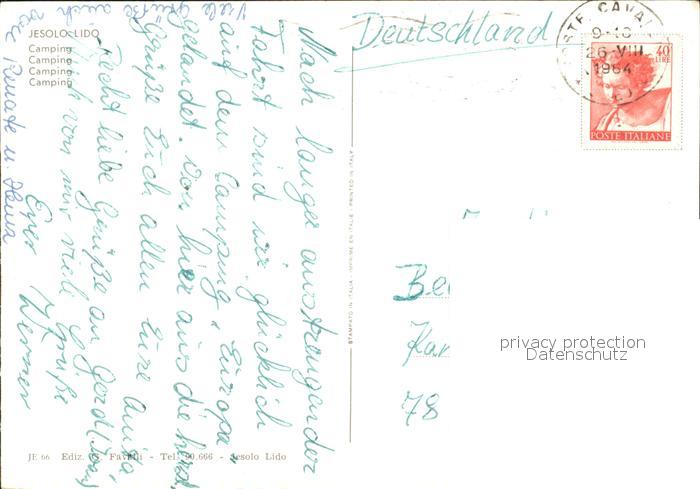 JESOLO LIDO
Camping
Camping
Camping
Camping
Nach langer anstrengender
Fahrt sind wir glücklich
auf dem Camping „Europa"
gelandet. Von hier aus die herzl.
Grüße Euch allen Eure Anita
Recht liebe Grüße an Gerdl
Auch von mir viele Grüße
Euer Werner
Viele Grüße auch
von Renate u.
STAMPATO IN ITALIA - IMPRIMÉ EN ITALIE - PRINTED IN ITALY
JE 66 Ediz. Tel. Jesolo Lido
Deutschland
9-10
26-VIII
1964
40
LIRE
POSTE ITALIANE
78
privacy protection
Datenschutz